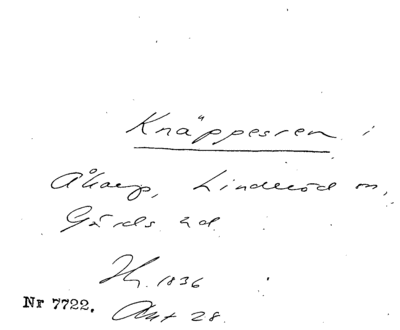 Knäppesren i
Åkarp, Linderöd sn,
Gärds hd
Hy. 1836
Nr 7722. Akt 28.